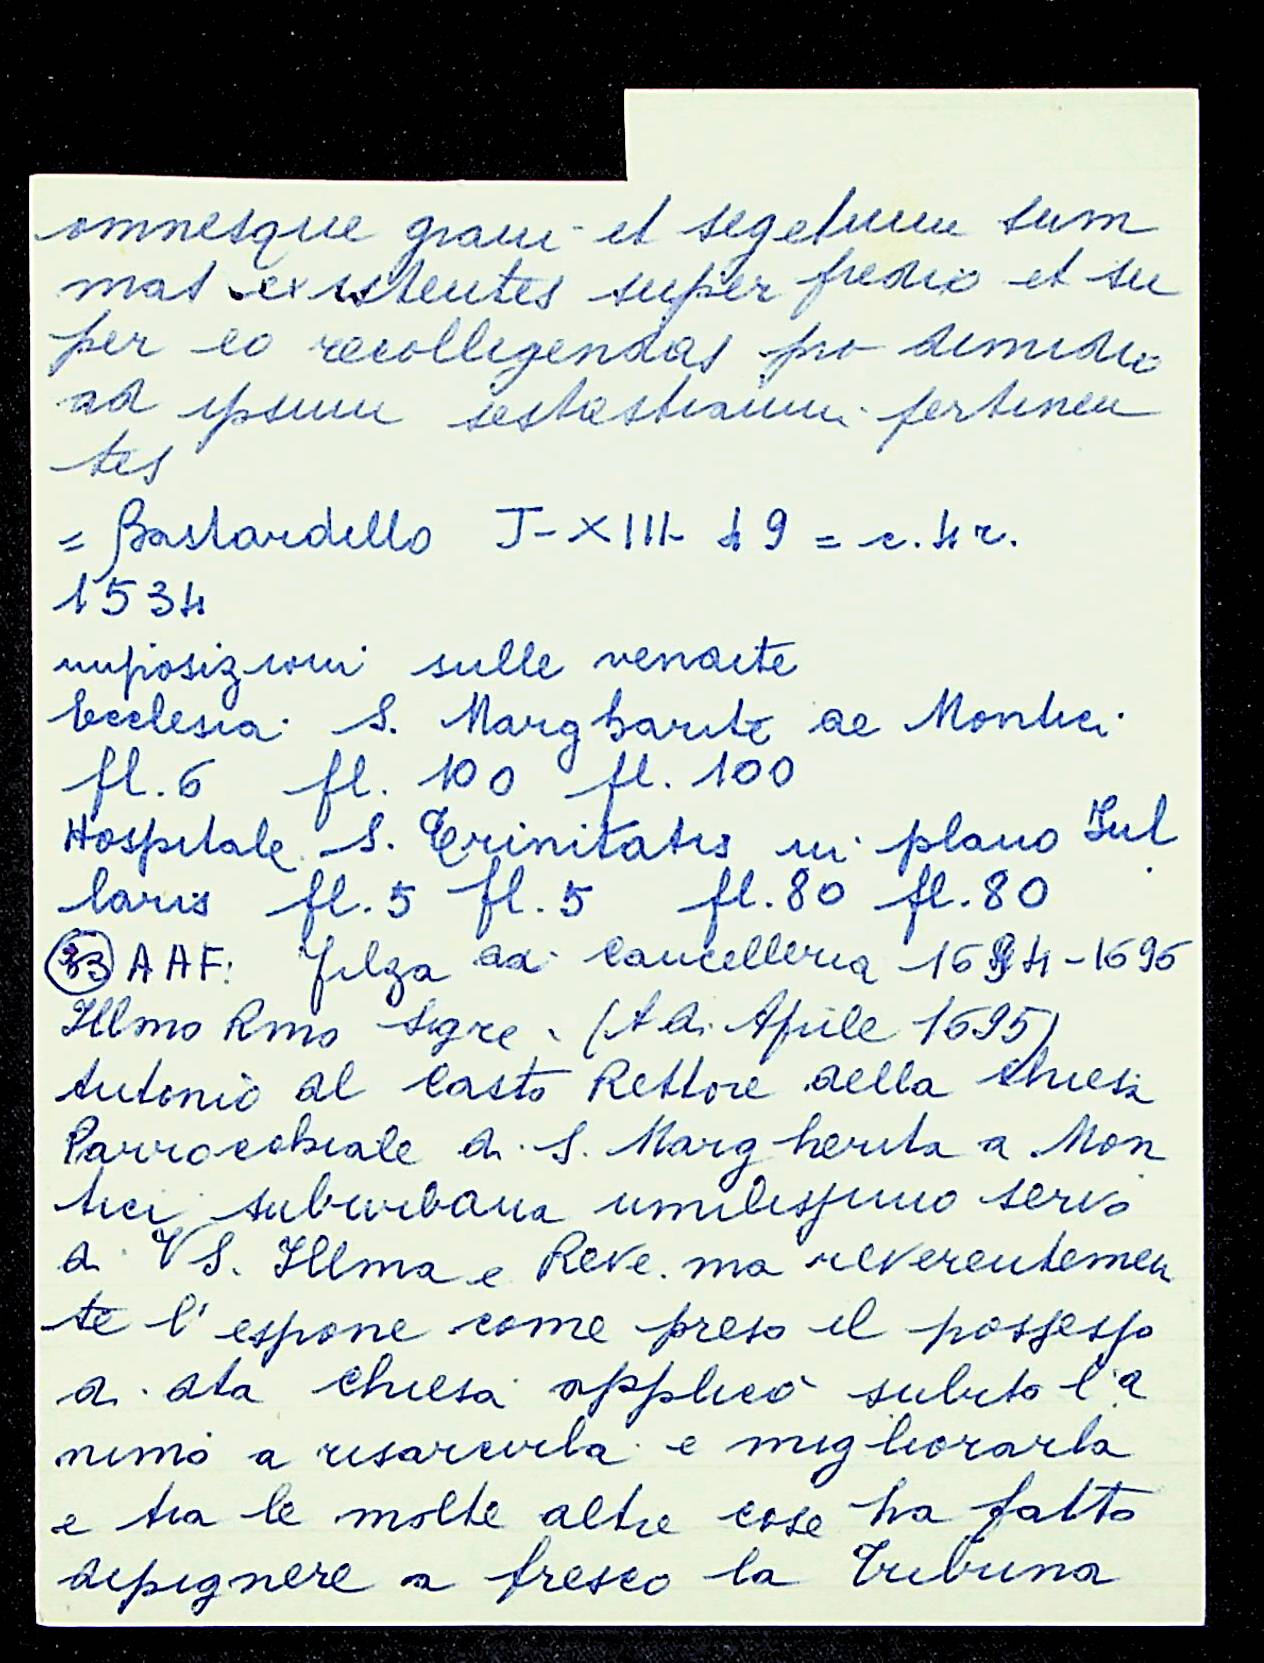 omnesque grani et segetum sum
mas existentes super predio et su
per eo recolligendas pro dimidio
ad ipsum sebastianum pertinen
tes
= Bastardello J-XIII-49 = c.4r.
1534
imposizioni sulle vendite
Ecclesia S. Margharite de Montici
fl.6 fl. 100 fl. 100
Hospitale S. Trinitatis in plano Jul
laris fl.5 fl.5 fl.80 fl.80
33 AAF: filza di Cancelleria 1694-1696
Illmo Rmo Sigre (A di Aprile 1695)
Antonio dal Casto Rettore della Chiesa
Parrocchiale di S. Margherita a Mon
tici suburbana umilissimo servo
di VS. Illma e Reve.ma reverentemen
te l'espone come preso il possesso
di dta chiesa applicò subito l'a
nimo a risarcirla e migliorarla
e tra le molte altre cose ha fatto
depignere a fresco la Tribuna